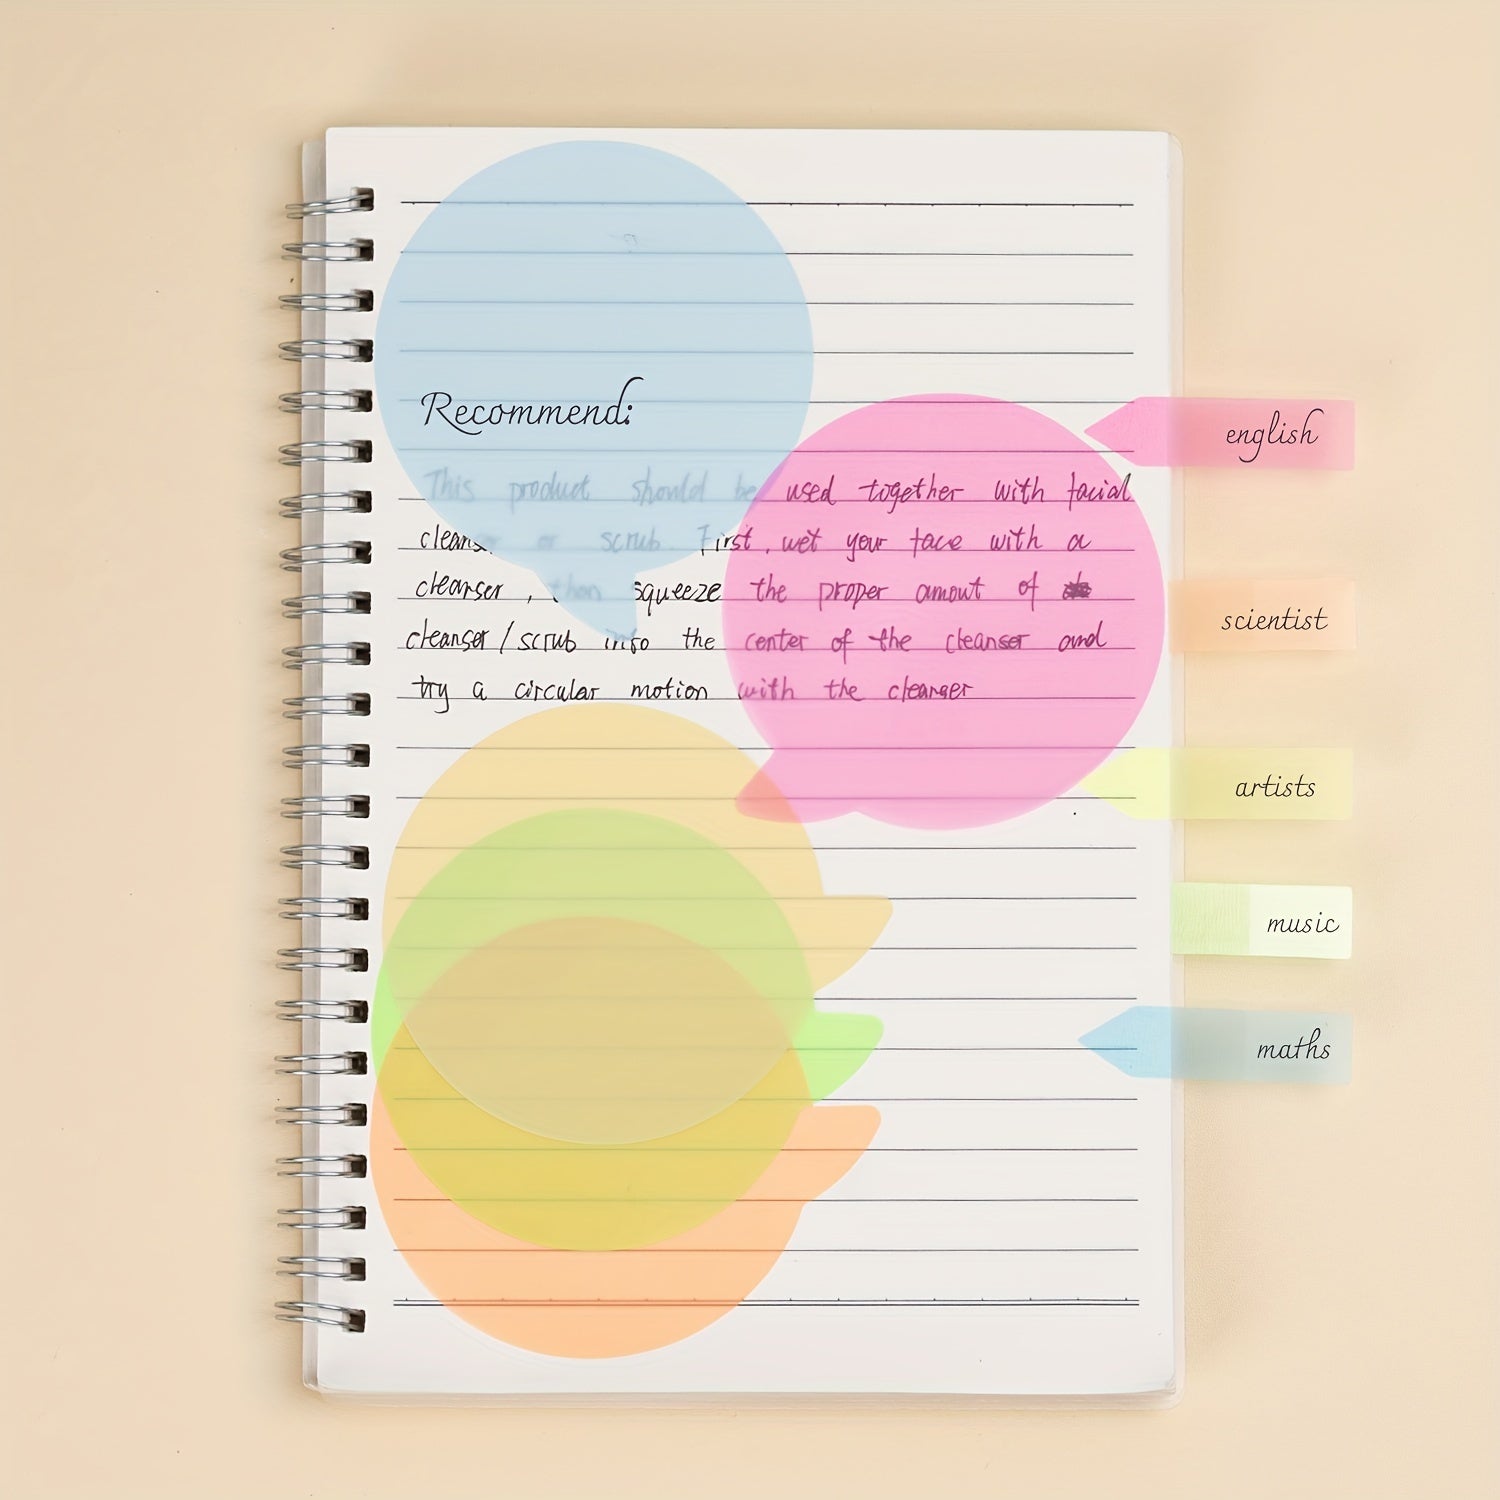 Recommend:
This product should be used together with facial
cleanser or scrub. First, wet your face with a
cleanser, then squeeze the proper amout of
cleanser/scrub into the center of the cleanser and
try a circular motion with the cleanser
english
scientist
artists
music
maths